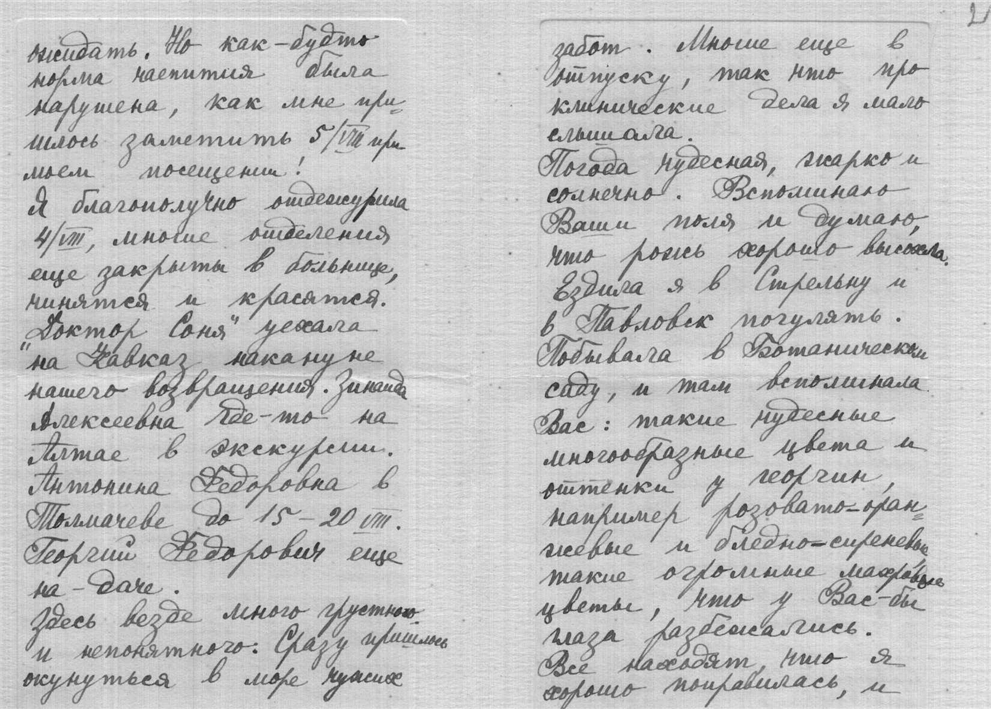 2
ожидать. Но как-будто
норма чаепития была
нарушена, как мне при-
шлось заметить 5/VIII при
моем посещении!
Я благополучно отдежурила
4/VIII, многие отделения
еще закрыты в больнице,
чинятся и красятся.
"Доктор Соня" уехала
на Кавказ накануне
нашего возвращения. Зинаида
Алексеевна где-то на
Алтае в экскурсии.
Антонина Федоровна в
Толмачеве до 15-20 VIII.
Георгий Федорович еще
на-даче.
Здесь везде много грустного
и непонятного. Сразу пришлось
окунуться в море чужих
забот. Многие еще в
отпуску, так что про
клинические дела я мало
слышала.
Погода чудесная, жарко и
солнечно. Вспоминаю
Ваши поля и думаю,
что рожь хорошо высохла.
Ездила я в Стрельну и
в Павловск погулять.
Побывала в Ботаническом
саду, и там вспоминала
Вас: такие чудесные
многообразные цвета и
оттенки у георгин,
например розовато-оран-
жевые и бледно-сиреневые,
такие огромные махровые
цветы, что у Вас-бы
глаза разбежались.
Все находят, что я
хорошо поправилась, и